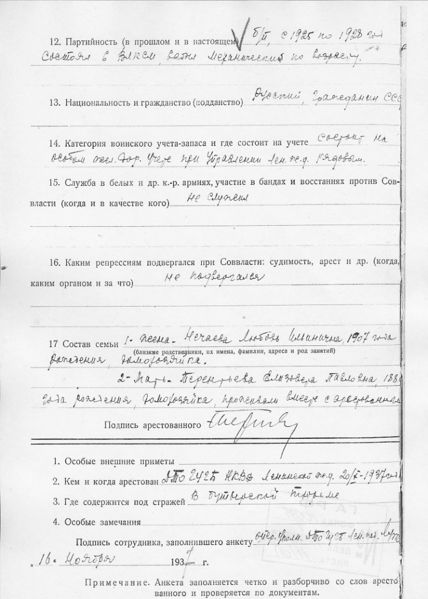 12. Партийность (в прошлом и в настоящем) б/п, с 1925 по 1928 год
состоял в ВЛКСМ, выбыл механически по возрасту.
13. Национальность и гражданство (подданство) Русский, гражданин ССС
14. Категория воинского учета-запаса и где состоит на учете состоит на
особом жел. дор. учете при Управлении Лен. ж.д. рядовым.
15. Служба в белых и др. к.-р. армиях, участие в бандах и восстаниях против Сов-
власти (когда и в качестве кого) не служил
16. Каким репрессиям подвергался при Соввласти: судимость, арест и др. (когда,
каким органом и за что) не подвергался
17 Состав семьи 1- жена - Нечаева Любовь Ильинична 1907 года
(близкие родственники, их имена, фамилии, адреса и род занятий)
рождения, домохозяйка.
2- Мать - Терентьева Елизавета Павловна, 188
года рождения, домохозяйка, проживали вместе с арестованным
Подпись арестованного
1. Особые внешние приметы
2. Кем и когда арестован ДТО ГУГБ НКВД Ленинской жд. 20/X-1937
3. Где содержится под стражей В Бутырской тюрьме
4. Особые замечания
Подпись сотрудника, заполнившего анкету опер. ДТО ГУГБ Лен. жд.
16. Ноября 1937 г.
Примечание. Анкета заполняется четко и разборчиво со слов аресто
ванного и проверяется по документам.